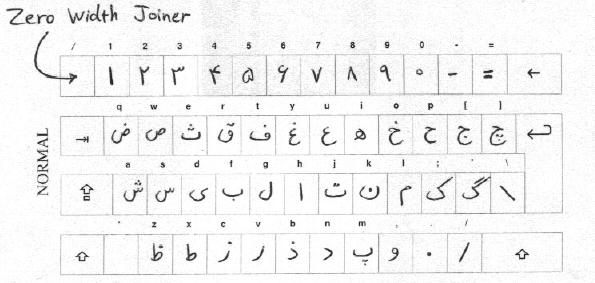 Zero Width Joiner
/ 1 2 3 4 5 6 7 8 9 0 - =
۱ ۲ ۳ ۴ ۵ ۶ ۷ ۸ ۹ ۰ - = ←
q w e r t y u i o p [ ]
⇥ ض ص ث ق ف غ ع ه خ ح ج چ ↵
NORMAL
a s d f g h j k l ; ' \
⇪ ش س ی ب ل ا ت ن م ک گ \
z x c v b n m , . /
⇧ ظ ط ز ر ذ د پ و . / ⇧